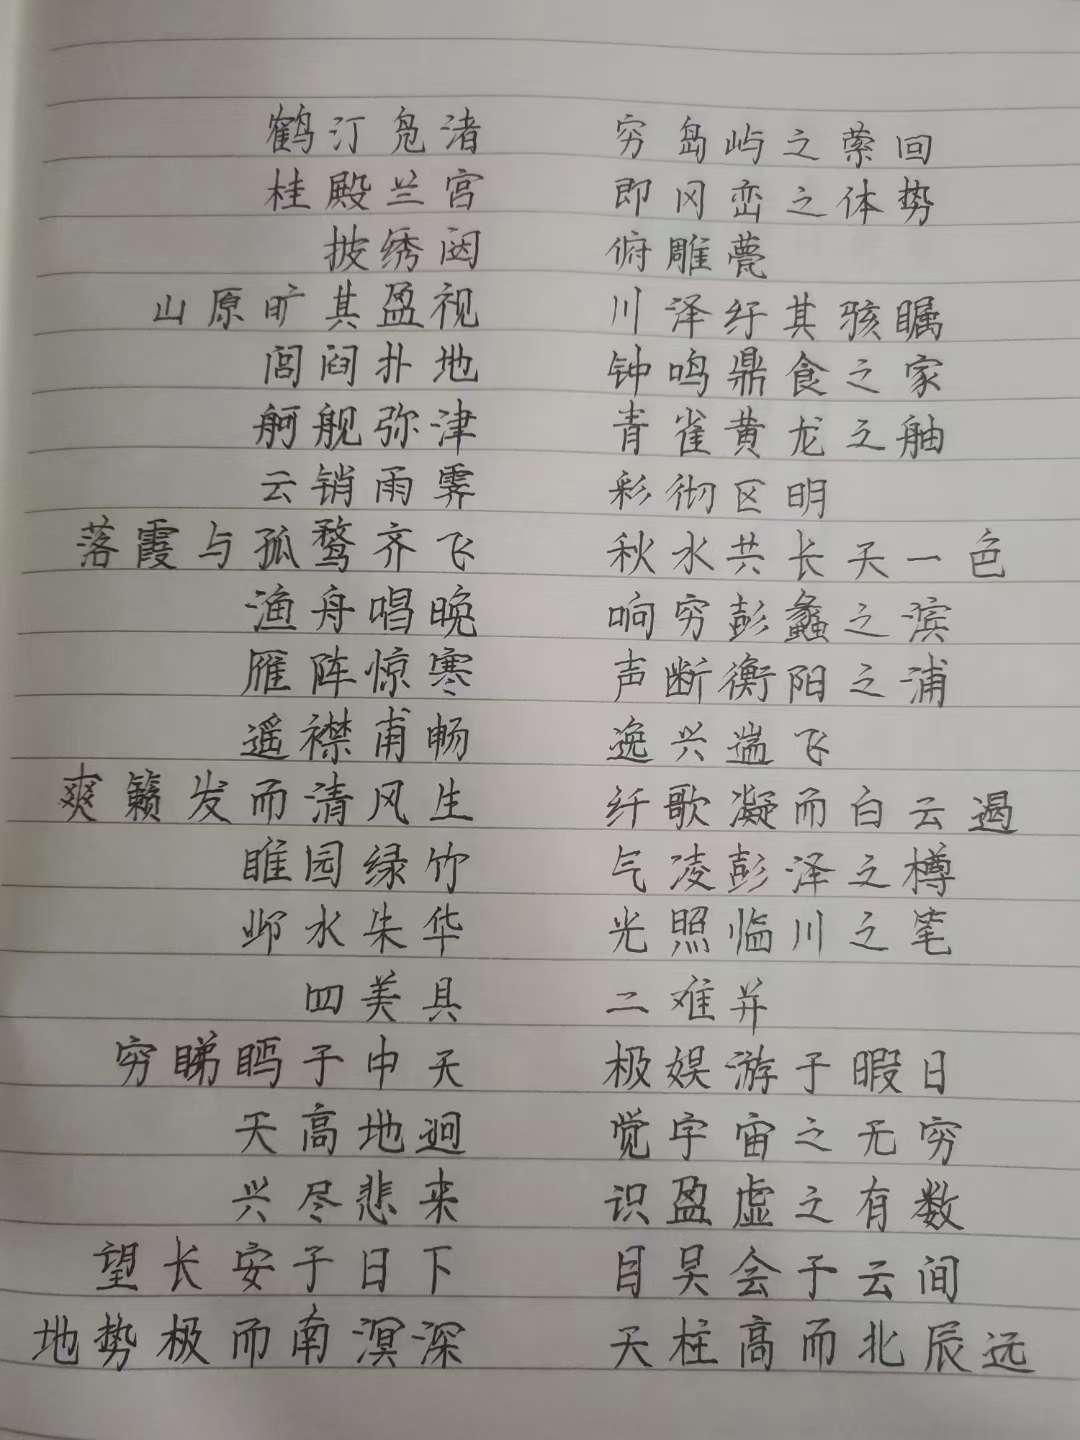 鹤汀凫渚 穷岛屿之萦回
桂殿兰宫 即冈峦之体势
披绣闼 俯雕甍
山原旷其盈视 川泽纡其骇瞩
闾阎扑地 钟鸣鼎食之家
舸舰弥津 青雀黄龙之舳
云销雨霁 彩彻区明
落霞与孤鹜齐飞 秋水共长天一色
渔舟唱晚 响穷彭蠡之滨
雁阵惊寒 声断衡阳之浦
遥襟甫畅 逸兴遄飞
爽籁发而清风生 纤歌凝而白云遏
睢园绿竹 气凌彭泽之樽
邺水朱华 光照临川之笔
四美具 二难并
穷睇眄于中天 极娱游于暇日
天高地迥 觉宇宙之无穷
兴尽悲来 识盈虚之有数
望长安于日下 目吴会于云间
地势极而南溟深 天柱高而北辰远